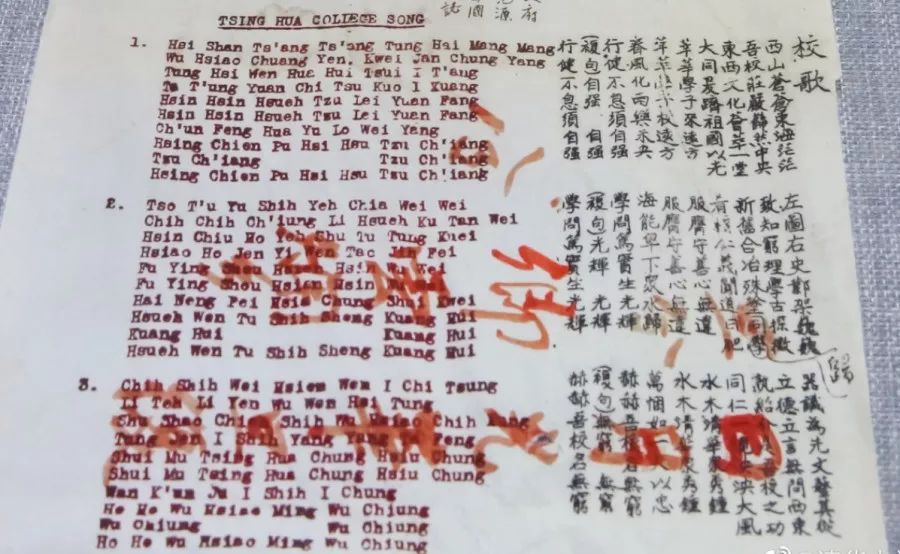 TSING HUA COLLEGE SONG
1. Hsi Shan Ts'ang Ts'ang Tung Hai Mang Mang
Wu Hsiao Chuang Yen, Kwei Jan Chung Yang
Tung Hsi Wen Hua Hui Tsui I T'ang
Ta T'ung Yuan Chi Tsu Kuo I Kuang
Hsin Hsin Hsueh Tzu Lei Yuan Fang
Hsin Hsin Hsueh Tzu Lei Yuan Fang
Ch'un Feng Hua Yu Lo Wei Yang
Hsing Chien Pu Hsi Hsu Tzu Ch'iang
Tzu Ch'iang Tzu Ch'iang
Hsing Chien Pu Hsi Hsu Tzu Ch'iang
2. Tso T'u Yu Shih Yeh Chia Wei Wei
Chih Chih Ch'iung Li Hsueh Ku Tan Wei
Hsin Chiu Ho Yeh Shu Tu Tung Kuei
Hsiao Ho Jen Yi Wen Tao Jih Fei
Fu Ying Shou Hsien Hsin Wu Wei
Fu Ying Shou Hsien Hsin
Hai Neng Pei Hsia Chung Shui Kwei
Hsueh Wen Tu Shih Sheng Kuang Hui
Kuang Hui Kuang Hui
Hsueh Wen Tu Shih Sheng Kuang Hui
3. Chih Shih Wei Hsien Wen I Chi Tsung
Li Teh Li Yen Wu Wen Hsi Tung
Shu Shao Chieh Shih Wu Hsiao Chih Kung
Tung Jen I Shih Yang Yang Ta Feng
Shui Mu Tsing Hua Chung Hsiu Chung
Shui Mu Tsing Hua Chung Hsiu Chung
Wan K'un Ju I Shih I Chung
Ho Ho Wu Hsiao Ming Wu Chiung
Wu Chiung Wu Chiung
Ho Ho Wu Hsiao Ming Wu Chiung
校歌
西山蒼蒼東海茫茫
吾校莊嚴巋然中央
東西文化薈萃一堂
大同爰躋祖國以光
莘莘學子來遠方
莘莘學子來遠方
春風化雨樂未央
行健不息須自强
(複句)自强 自强
行健不息須自强
左圖右史鄴架巍巍
致知窮理學古探微
新舊合冶殊途同學
歸
肴核仁義聞道日肥
服膺守善心無違
服膺守善心無違
海能卑下衆水歸
學問篤實生光輝
(複句)光輝 光輝
學問篤實生光輝
器識為先文藝其從
立德立言無問西東
孰紹介是吾校之功
同仁一視泱泱大風
水木清華衆秀鐘
水木清華衆秀鐘
萬悃如一矢以忠
赫赫吾校名無窮
(複句)無窮 無窮
赫赫吾校名無窮